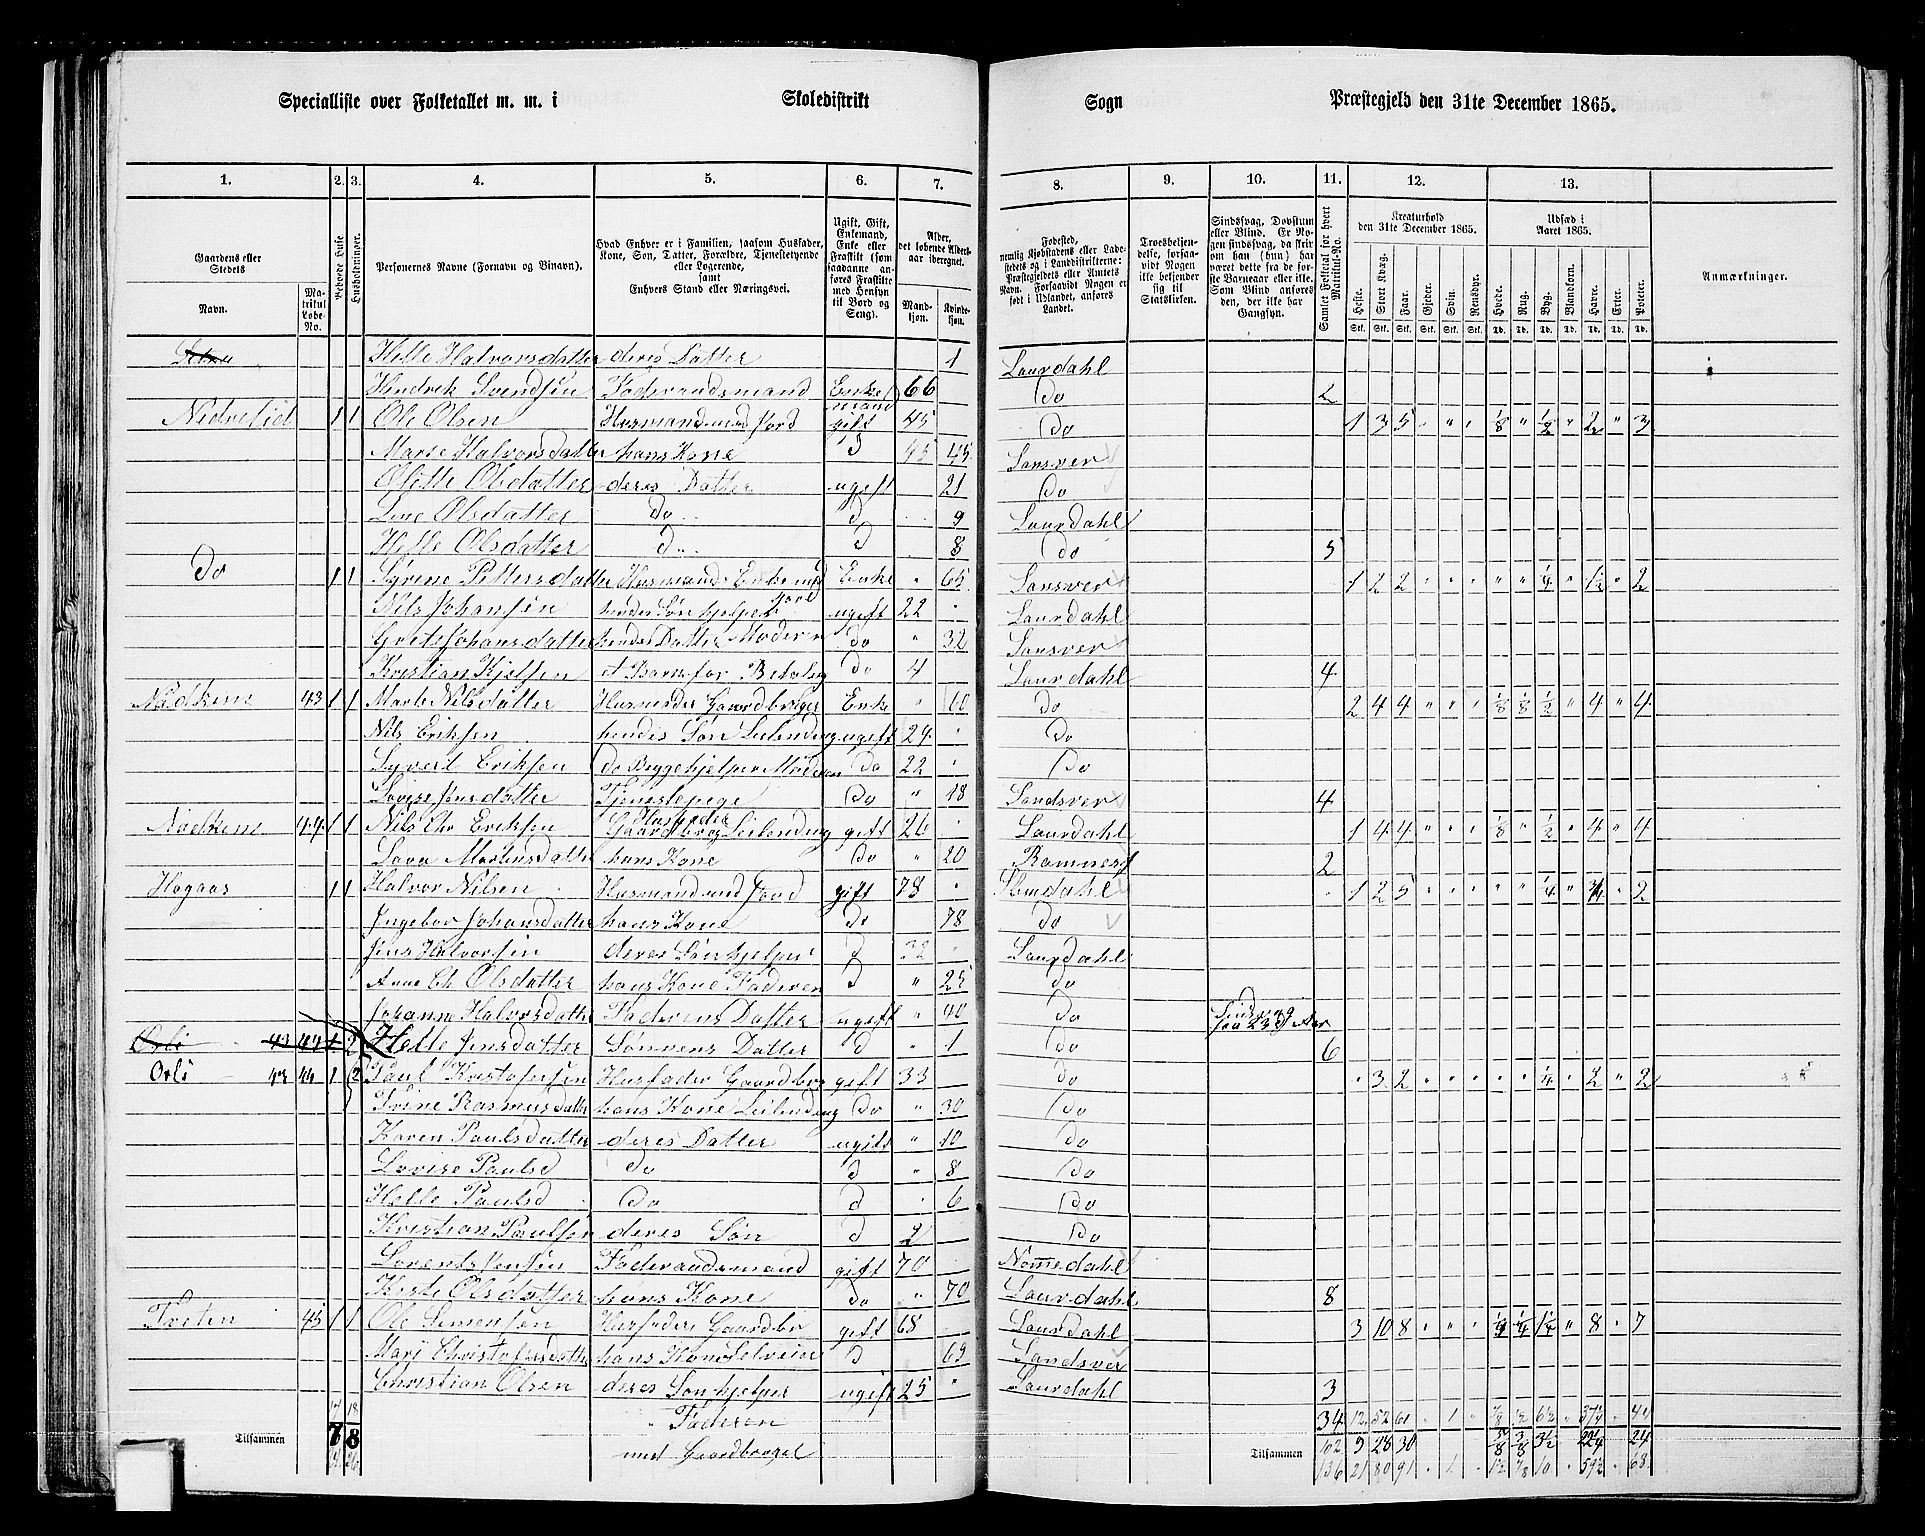 Specialliste over Folketallet m. m. i Skoledistrikt Sogn Præstegjeld den 31te December 1865.
1. 2. 3. 4. 5. 6. 7. 8. 9. 10. 11. 12. 13.
Gaardens eller Stedets
Navn. Matrikul Løbe-No.
Beboede Huse
Husholdninger.
Personernes Navne (Fornavn og Binavn).
Hvad Enhver er i Familien, saasom Husfader, Kone, Søn, Datter, Forældre, Tjenestetyende eller Logerende, samt Enhvers Stand eller Næringsvei.
Ugift, Gift, Enkemand, Enke eller Fraskilt (som saadanne anføres Fraskilte med Hensyn til Bord og Seng).
Alder, det løbende Alders-aar iberegnet.
Mandkjøn. Kvindekjøn.
Fødested, nemlig Kjøbstadens eller Ladestedets og i Landdistrikterne: Præstegjeldets eller Amtets Navn. Forsaavidt Nogen er født i Udlandet, anføres Landet.
Troesbekjendelse, forsaavidt Nogen ikke bekjender sig til Statskirken.
Sindssvag, Døvstum eller Blind. Er Nogen sindssvag, da skrives om han (hun) har været dette fra de første Barneaar eller ikke. Som Blind anføres den, der ikke har Gangsyn.
Samlet Folketal for hvert Matrikul-No.
Kreaturhold den 31te December 1865.
Heste. Stort Kvæg. Faar. Gjeder. Svin. Rensdyr.
Udsæd i Aaret 1865.
Hvede. Rug. Byg. Blandkorn. Havre. Erter. Poteter.
Anmærkninger.
Helle Halvorsdatter deres Datter 1 Laurdahl
Hendrik Svendsen Føderaadsmand Enkemand 66 Do 2
Nedrelid 1 1 Ole Olsen Husmand med Jord gift 45 Do 1 3 5 " " " 1/8 " 1/2 " 2 " 3
Marie Halvorsdatter hans Kone D 45 Sansver
Olette Olsdatter deres Datter ugift 21 Do
Line Olsdatter Do D 9 Laurdahl
Helle Olsdatter D D 8 Do 5
Do 1 1 Syrene Pettersdatter Husmands Enke med Jord Enke " 65 Sansver 1 2 2 " " " " " 1/4 " 1 1/2 " 2
Nils Johansen hendes Søn hjelper ugift 22 " Laurdahl
Grete Johansdatter hendes Datter Moderen Do " 32 Sansver
Kristian Kjelsen et Barn for Betaling Do 4 Laurdahl 4
Nadkem 43 1 1 Marte Nilsdatter Husmoder Gaardbruger Enke " 60 Do 2 4 4 " " " 1/8 1/8 1/2 " 4 " 4
Nils Eriksen hendes Søn Leilending ugift 24 " Do
Syvert Eriksen Do Begge hjelper Moderen Do 22 " Do
Lovise Jensdatter Tjenestepige Do " 18 Sandsver 4
Nadkem 44 1 1 Nils Chr Eriksen Husfader Gaardbrug Leilending gift 26 " Laurdahl 1 4 4 " " " 1/8 " 1/2 " 4 " 4
Lava Martinsdatter hans Kone Do " 20 Ramnes 2
Hagaas 1 1 Halvor Nilsen Husmand med Jord gift 78 " 1 2 5 " " " " " 1/4 " " 2
Ingebor Johansdatter hans Kone Do 78 Do
Jens Halvorsen deres Søn hjelper D 32 " Laurdahl
Anne Ch Olsdatter hans Kone Faderen D " 25 Do
Johanne Halvorsdatter Faderens Datter ugift " 40 Do
Orli 43 44 1 2 Helle Jensdatter Sønnens Datter D " 1 Do 6
Orli 43 44 1 2 Paul Kristofersen Husfader Gaardbrug gift 33 Do " 3 2 " " " " " 1/4 " 2 " 2
Syrine Rasmusdatter hans Kone Leilending Do " 30 Do
Karen Paulsdatter deres Datter ugift " 10 Do
Lovise Paulsd Do D " 8 Do
Helle Paulsd Do D " 6 Do
Kristian Paulsen deres Søn D 2 Do
Lorents Jensen Føderaadsmand gift 70 Nommedahl
Kirste Olsdatter hans Kone Do " 70 Laurdahl 8
Tveten 45 1 1 Ole Simensen Husfader Gaardbr gift 68 Laurdahl 3 10 8 " " " 1/4 1/4 1 1/4 " 8 " 7
Mari Christofersdatter hans Kone Selveier D 69 Sandsver
Christian Olsen deres Søn hjelper ugift 25 " Laurdahl 3
" Faderen
med Gaardbruget
34 12 52 61 " 1 " 7/8 1/2 6 1/2 " 37 1/4 " 44
Tilsammen 7 8 Tilsammen 102 9 28 30 5/8 3/8 3 1/2 22 1/4 24
136 21 80 91 " 1 " 1 1/2 7/8 10 " 59 1/2 " 68